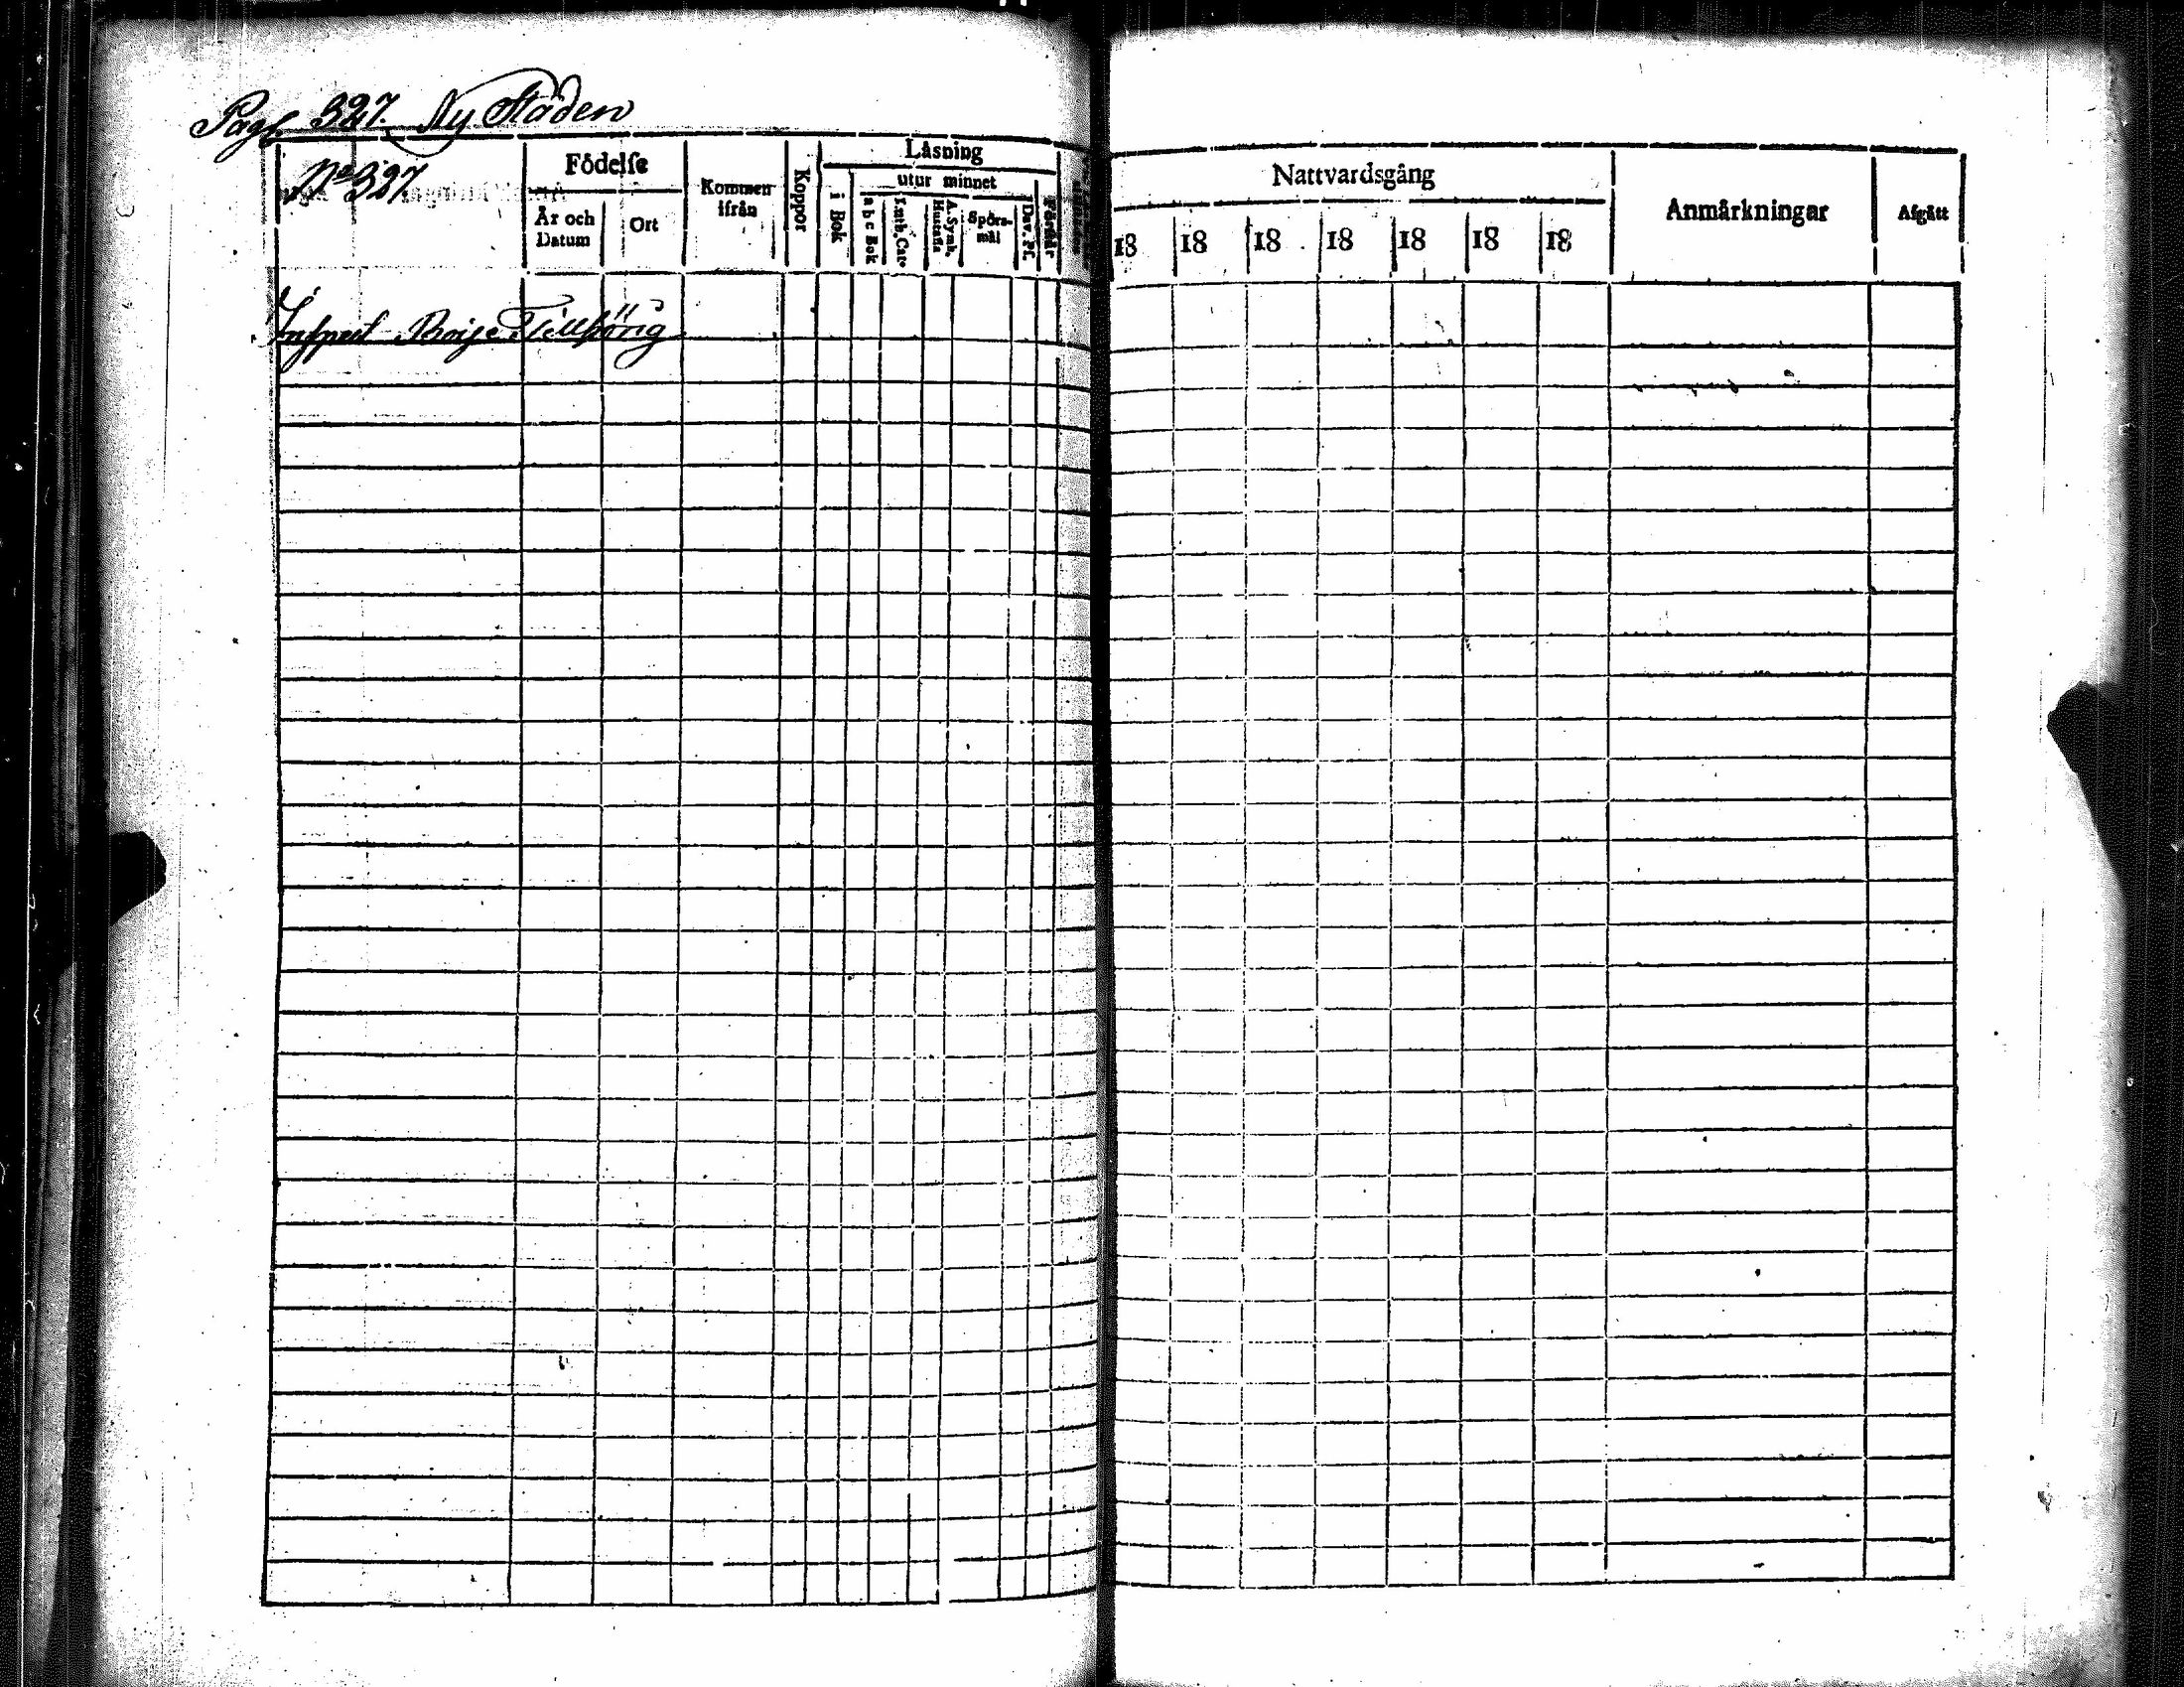 Pag. 327. Ny Staden
No 327
Födelse
År och Datum
Ort
Kommen ifrån
Koppor
Läsning
i Bok
utur minnet
a b c Bok
Luth. Cat.
A. Symb.
Hustafla
Spörs-
mål
Dav. Ps.
Nattvardsgång
18 18 18 18 18 18 18
Anmärkningar
Afgått
Tillhörig